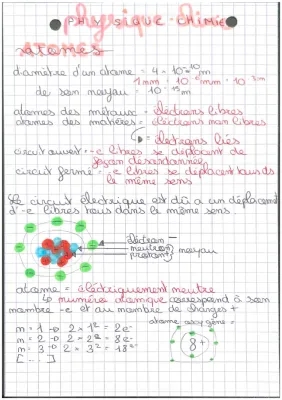 PHYSIQUE-CHIMIE
physique chimie
atomes
diamètre d'un atome = 4 × 10⁻¹⁰ m
1 mm = 10⁻³ m
de son noyau = 10⁻¹⁵ m
atomes des métaux = électrons libres
atomes des matières = électrons non libres
électrons liés
circuit ouvert = -e libres se déplacent de
façon désordonnée
circuit fermé = -e libres se déplacent tous ds
le même sens
Le circuit électrique est dû a un déplacement
d'-e libres tous dans le même sens
électron
neutron
proton
noyau
atome = électriquement neutre
numéro atomique correspond à son
nombre -e et au nombre de charges +
atome oxygène =
m = 1 → 2 × 1² = 2e⁻
m = 2 → 2 × 2² = 8e⁻
m = 3 → 2 × 3² = 18e⁻
8+
[...]